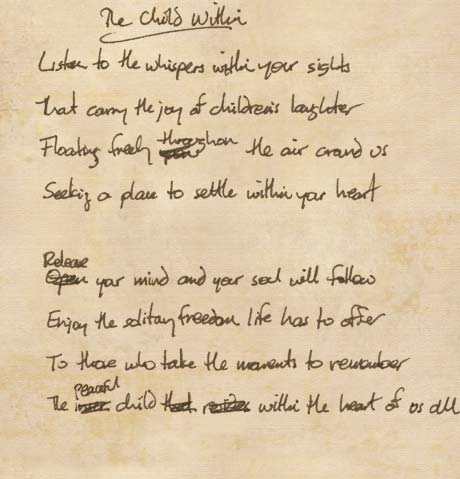 The Child Within
Listen to the whispers within your sights
That carry the joy of children's laughter
Floating freely through on the air around us
Seeking a place to settle within your heart
Release
Open your mind and your soul will follow
Enjoy the solitary freedom life has to offer
To those who take the moments to remember
peaceful
The inner child that resides within the heart of us all